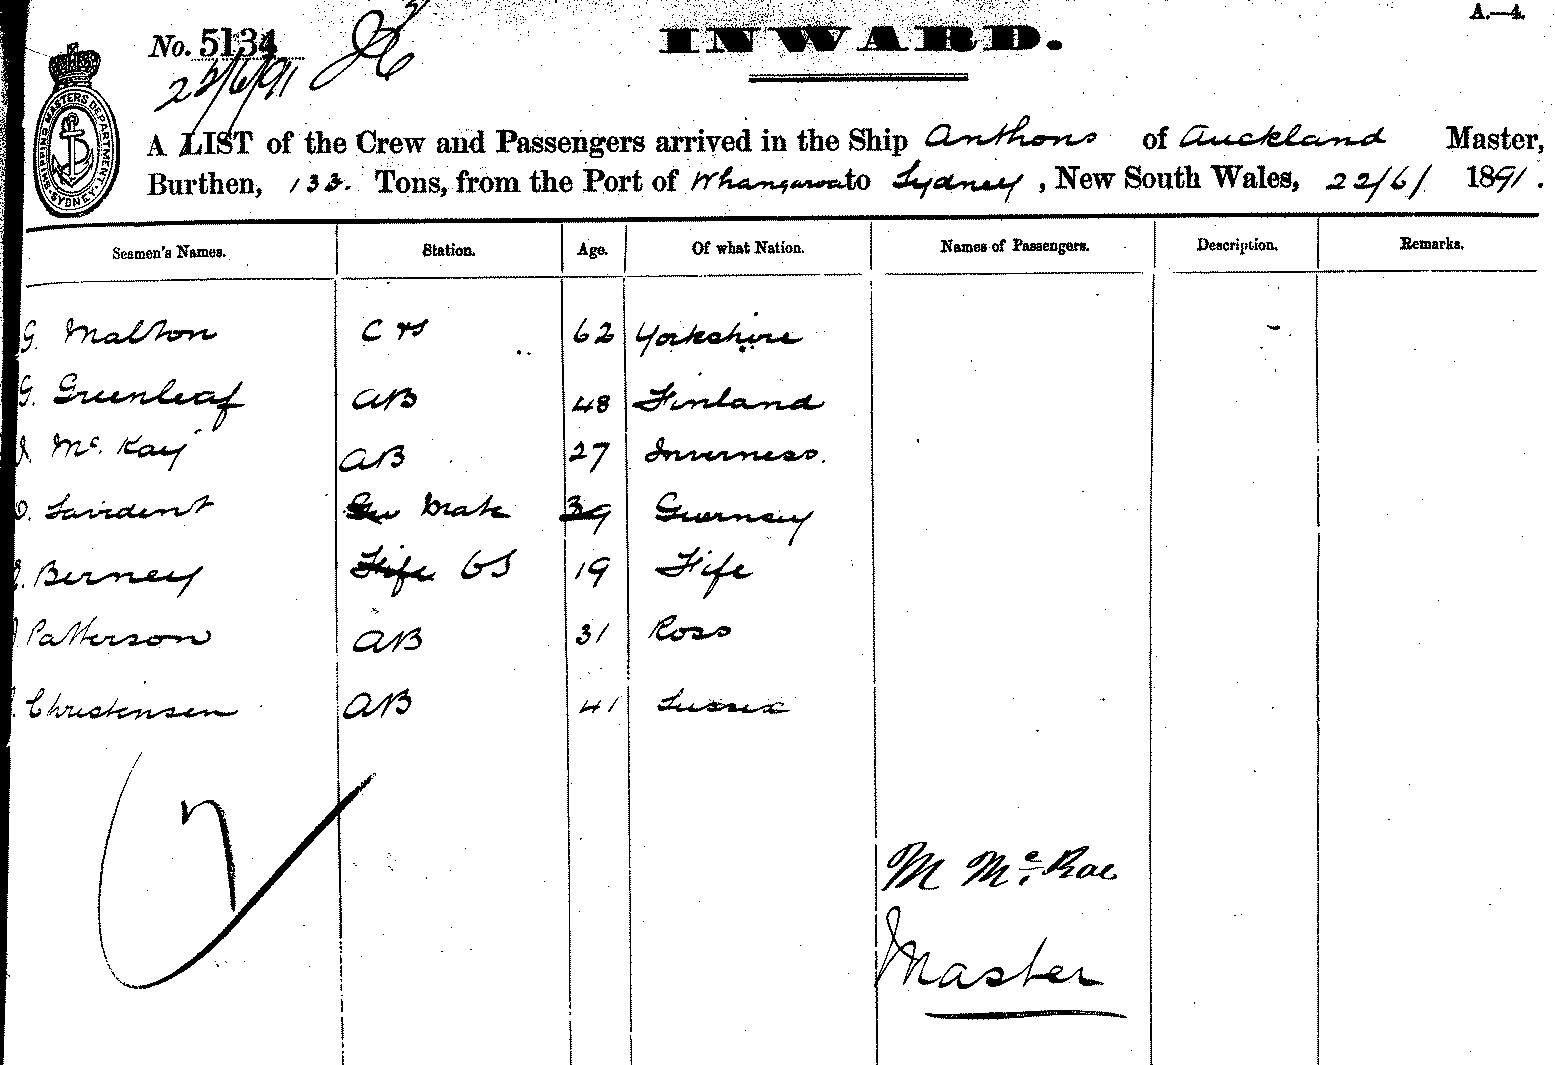 A.—4.
No. 5134 INWARD.
22/6/91
SHIPPING MASTERS DEPARTMENT SYDNEY
A LIST of the Crew and Passengers arrived in the Ship Anthons of Auckland Master,
Burthen, 133. Tons, from the Port of Whangaroa to Sydney, New South Wales, 22/6/ 1891.
Seamen's Names. Station. Age. Of what Nation. Names of Passengers. Description. Remarks.
G. Malton C & S 62 Yorkshire
G. Greenleaf AB 48 Finland
J. McKay AB 27 Inverness.
Mate 39 Guernsey
Berney Fife OS 19 Fife
Patterson AB 31 Ross
Christensen AB 41 Sussex
7
M McRae
Master